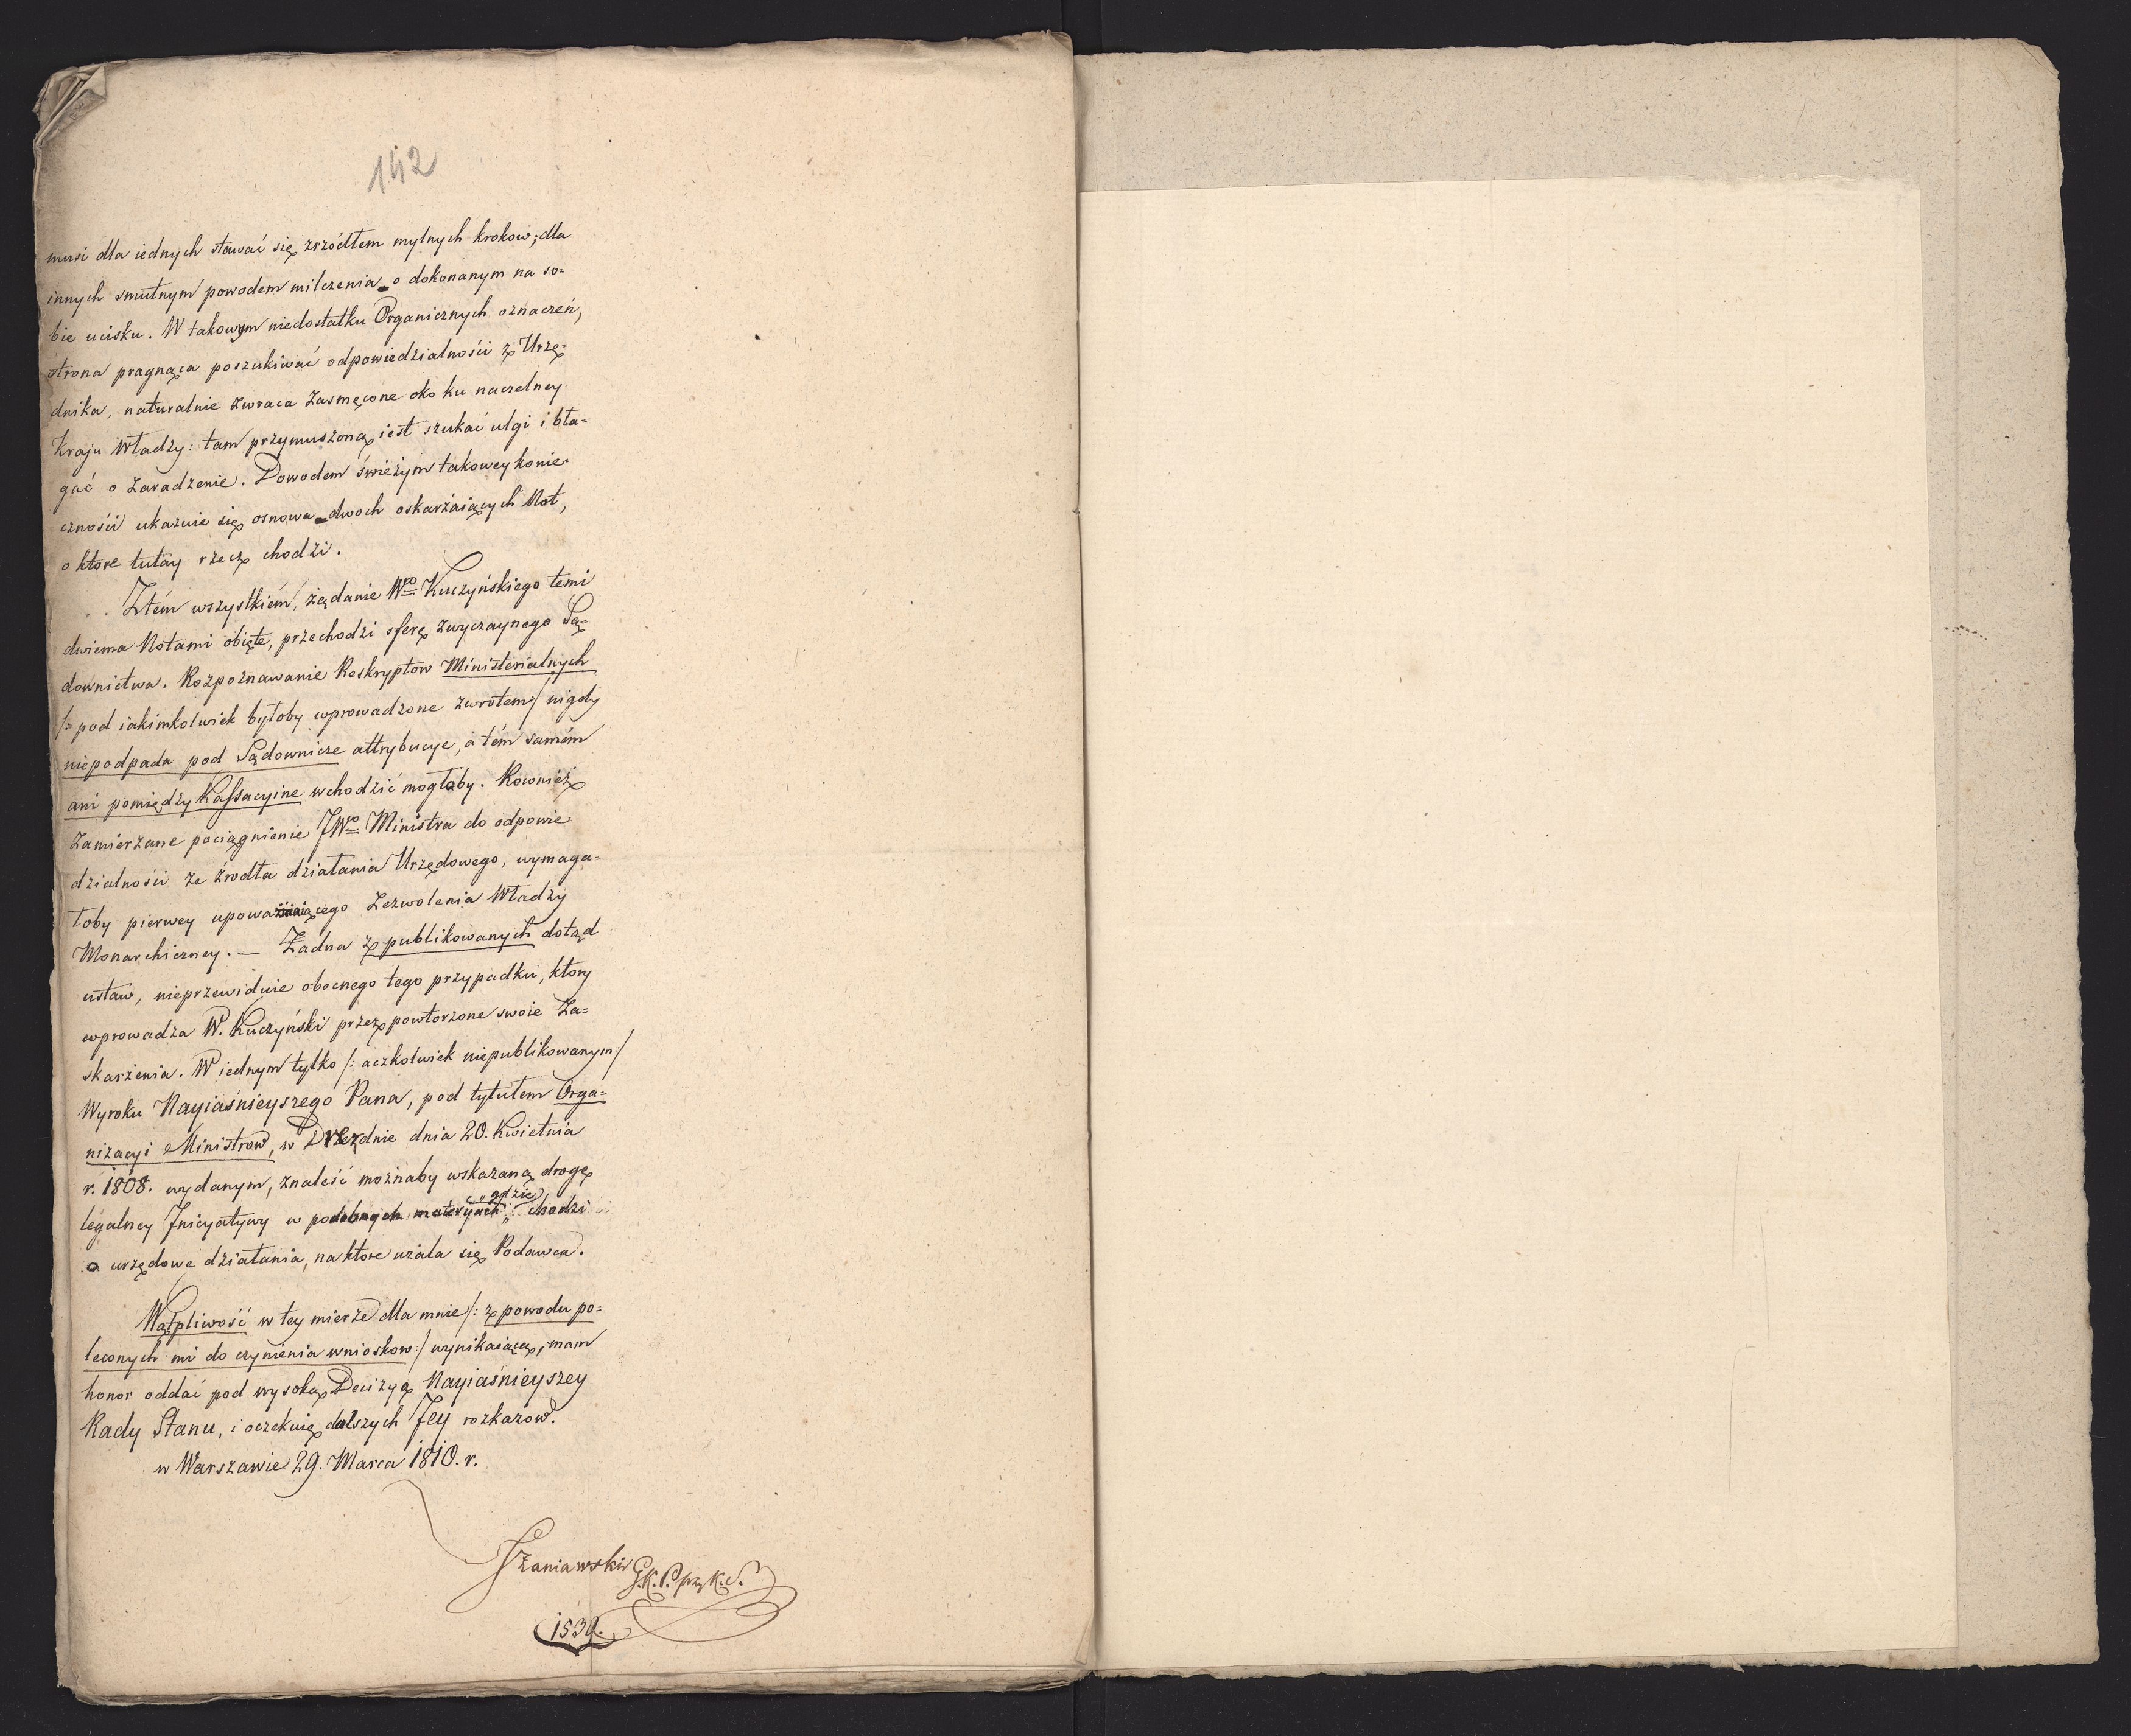 142
musi dla iednych stawać się zrzódłem mylnych krokow; dla
innych smutnym powodem milczenia o dokonanym na so-
bie ucisku. W takowym niedostatku Organicznych oznaczeń,
strona pragnąca poszukiwać odpowiedzialności z Urzę-
dnika, naturalnie zwraca zasmęcone oko ku naczelney
Kraju Władzy: tam przymuszoną iest szukać ulgi i bła-
gać o zaradzenie. Dowodem świeżym takowey konie-
czności ukazuie się osnowa dwoch oskarżaiących Not,
o ktore tutay rzecz chodzi.
Ztém wszystkiém, żądanie Wgo Kuczyńskiego temi
dwiema Notami obięte, przechodzi sferę zwyczaynego Są-
downictwa. Rozpoznawanie Reskryptow Ministerialnych
/: pod iakimkolwiek byłoby wprowadzone zwrotem :/ nigdy
niepodpada pod Sądownicze attrybucye, a tém samém
ani pomiędzy Kassacyine wchodzić mogłoby. Rownież
zamierzane pociągnienie JWgo Ministra do odpowie-
dzialności ze źrodła działania Urzędowego, wymaga-
łoby pierwey upoważniaiącego zezwolenia Władzy
Monarchiczney. — Żadna z publikowanych dotąd
ustaw, nieprzewiduie obecnego tego przypadku, ktory
wprowadza W. Kuczyński przez powtorzone swoie za-
skarżenia. W iednym tylko /: aczkolwiek niepublikowanym :/
Wyroku Nayiaśnieyszego Pana, pod tytułem Orga-
nizacyi Ministrow, w Dreznie dnia 20. Kwietnia
r. 1808. wydanym, znaleść możnaby wskazaną drogę
legalney Jnicyatywy w podobnych materyach „gdzie” chodzi
o urzędowe działania, na ktore użala się Podawca.
Wątpliwość w tey mierze dla mnie /: z powodu po-
leconych mi do czynienia wnioskow :/ wynikaiącą, mam
honor oddać pod wysoką Decizyą Nayiaśnieyszey
Rady Stanu, i oczekuię dalszych Jey rozkazow.
w Warszawie 29. Marca 1810. r.
Szaniawski G.K.P. przy K.S.
1539.